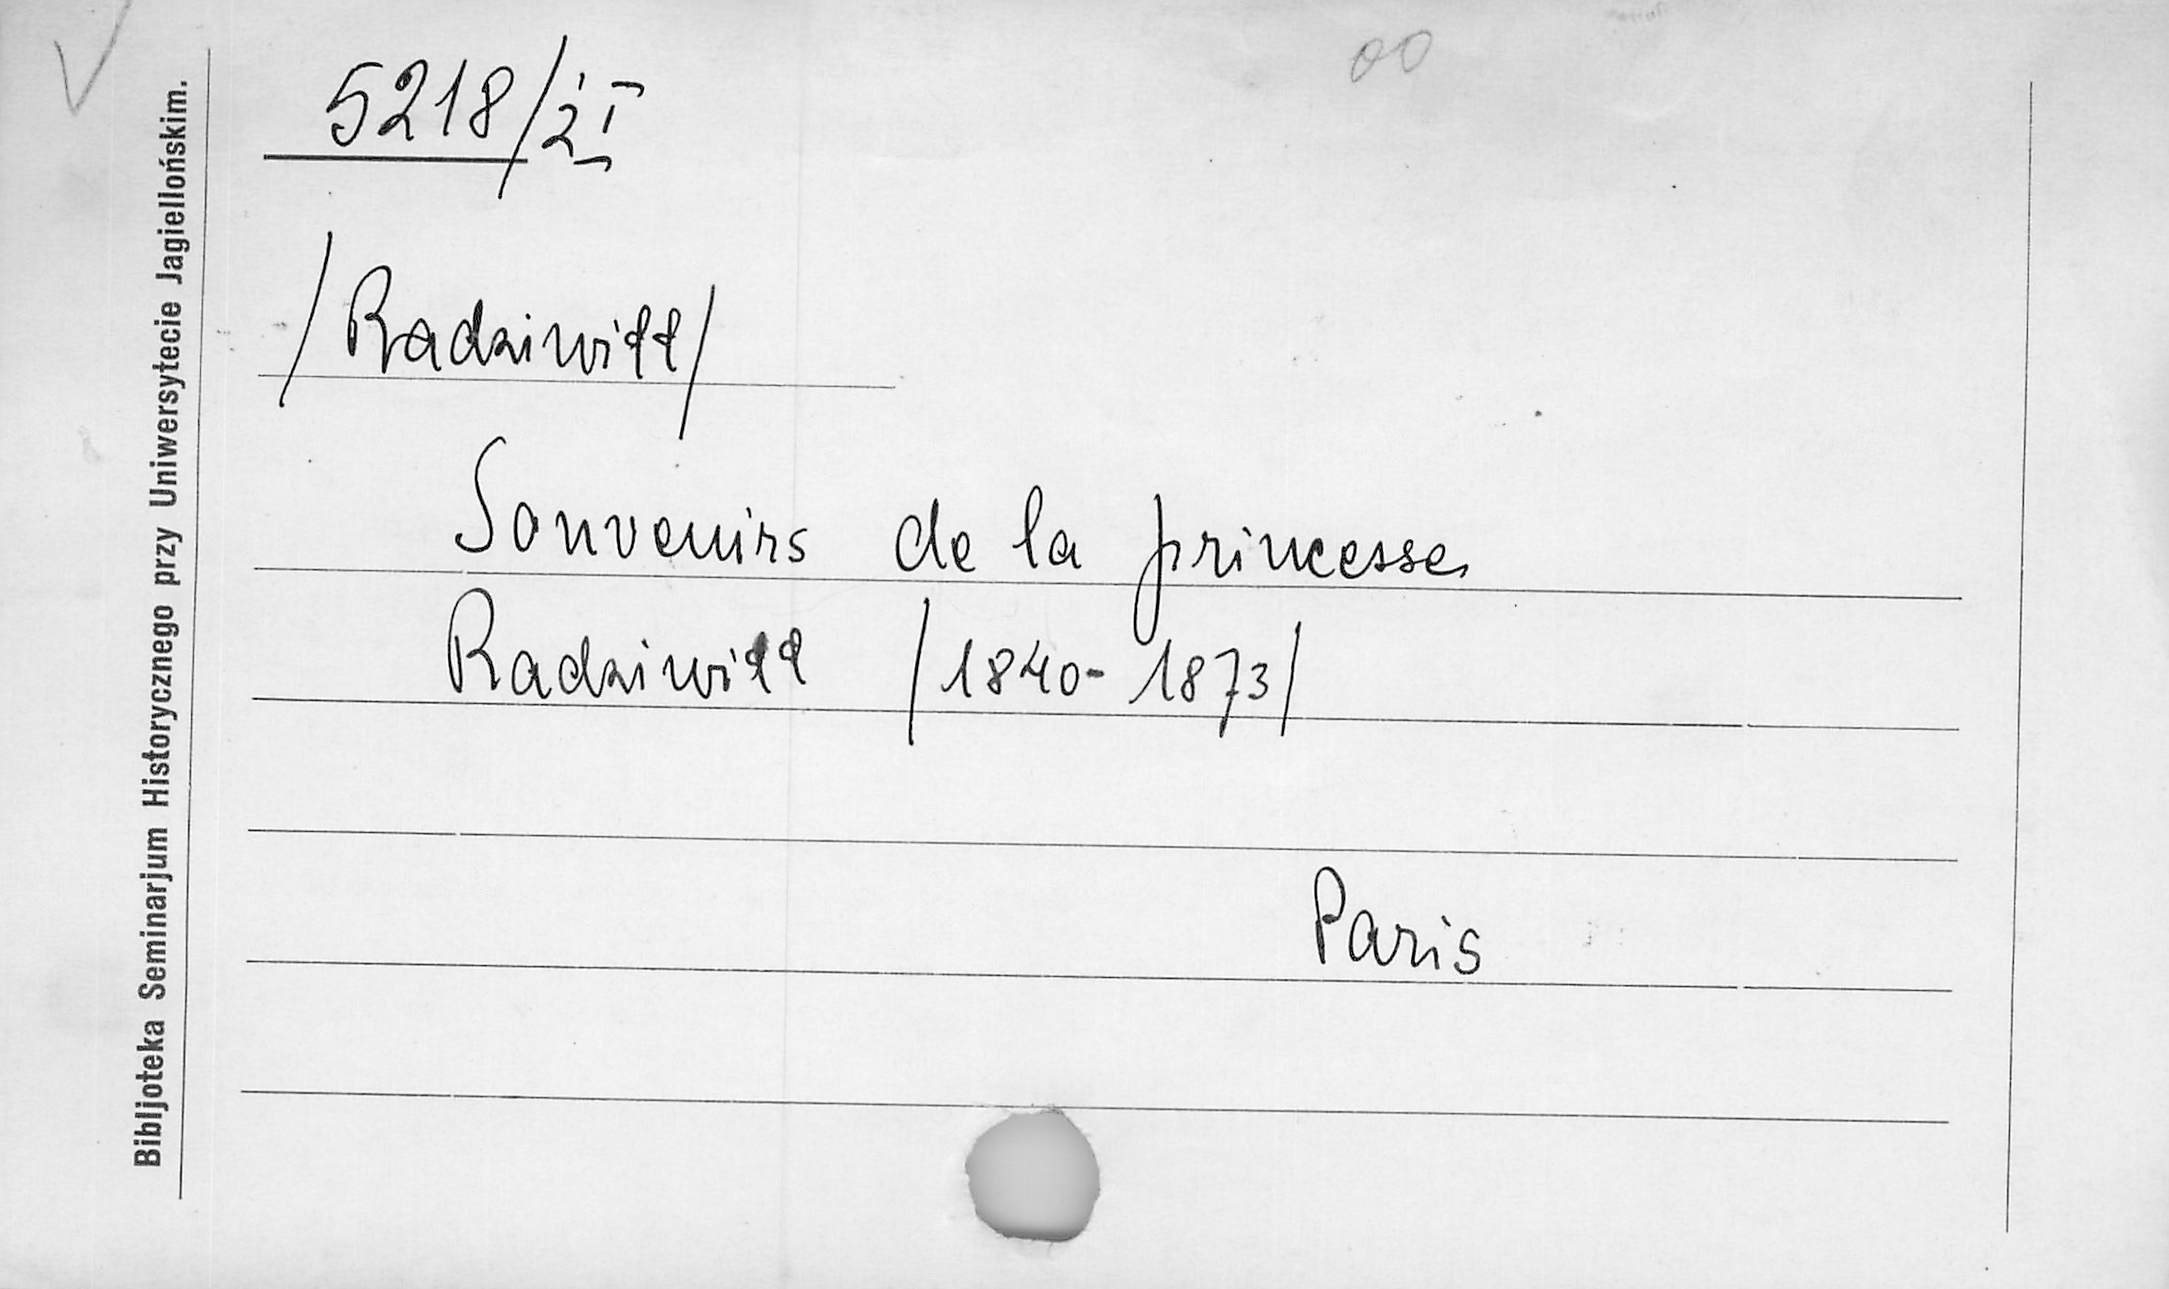 5218/2 I
00
/Radziwill/
Souvenirs de la princesse
Radziwill /1840-1873/
Paris
Bibljoteka Seminarjum Historycznego przy Uniwersytecie Jagiellońskim.